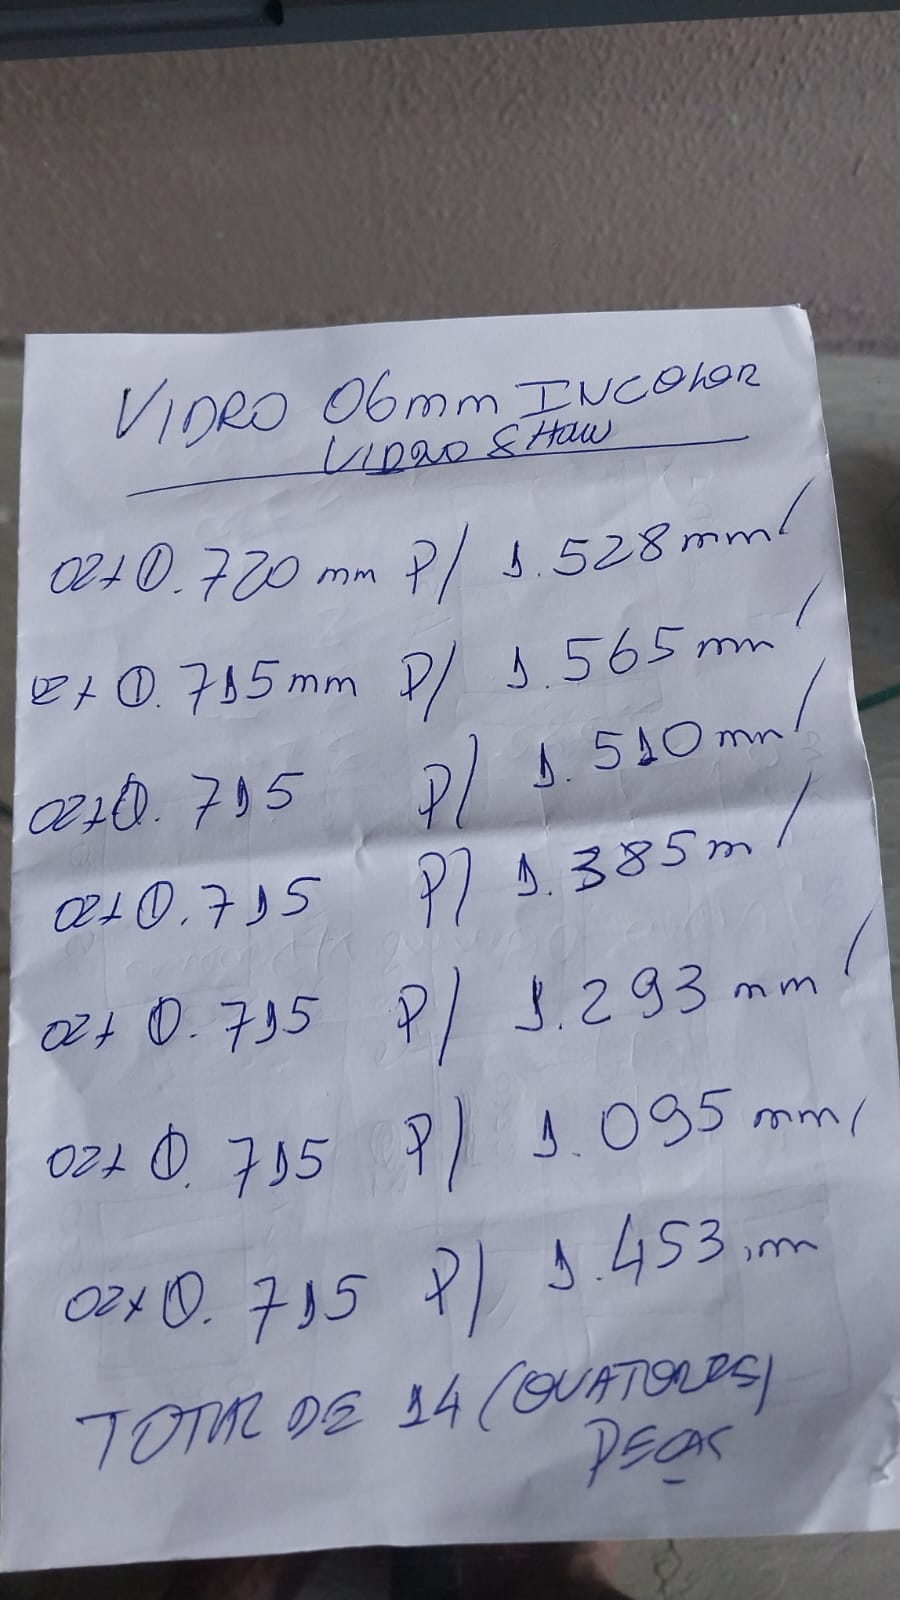 VIDRO 06mm INCOLOR
VIDRO SHOW
02x 0.720 mm P/ 1.528 mm/
02x 0.715 mm P/ 1.565 mm/
02x 0.715 P/ 1.510 mm/
02x 0.715 P/ 1.385 m/
02x 0.715 P/ 1.293 mm/
02x 0.715 P/ 1.095 mm/
02x 0.715 P/ 1.453 m
TOTAL DE 14 (QUATORZES)
PEÇAS